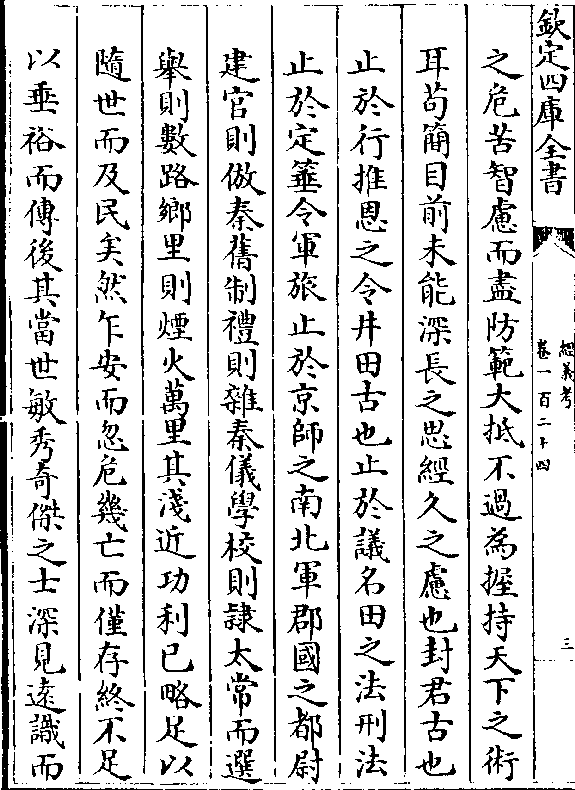 欽定四庫全書
經義考
卷一百二十四
三
之危苦智慮而盡防範大抵不過為握持天下之術
耳苟簡目前未能深長之思經久之慮也封君古也
止於行推恩之令井田古也止於議名田之法刑法
止於定箠令軍旅止於京師之南北軍郡國之都尉
建官則倣秦舊制禮則雜秦儀學校則隷太常而選
舉則數路鄉里則煙火萬里其淺近功利已略足以
隨世而及民矣然乍安而忽危幾亡而僅存終不足
以垂裕而傳後其當世敏秀奇傑之士深見遠識而